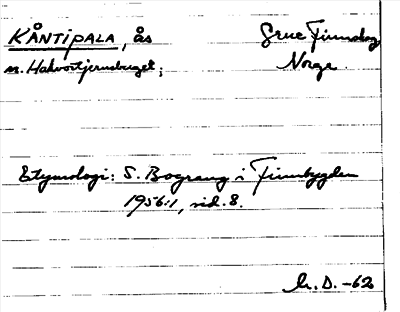 KÅNTIPALA, ås Grue Finnskog
n. Halvorstjernsberget; Norge.
Etymologi: S. Bograng i Finnbygden
1956:1, sid. 8.
h. D. -62